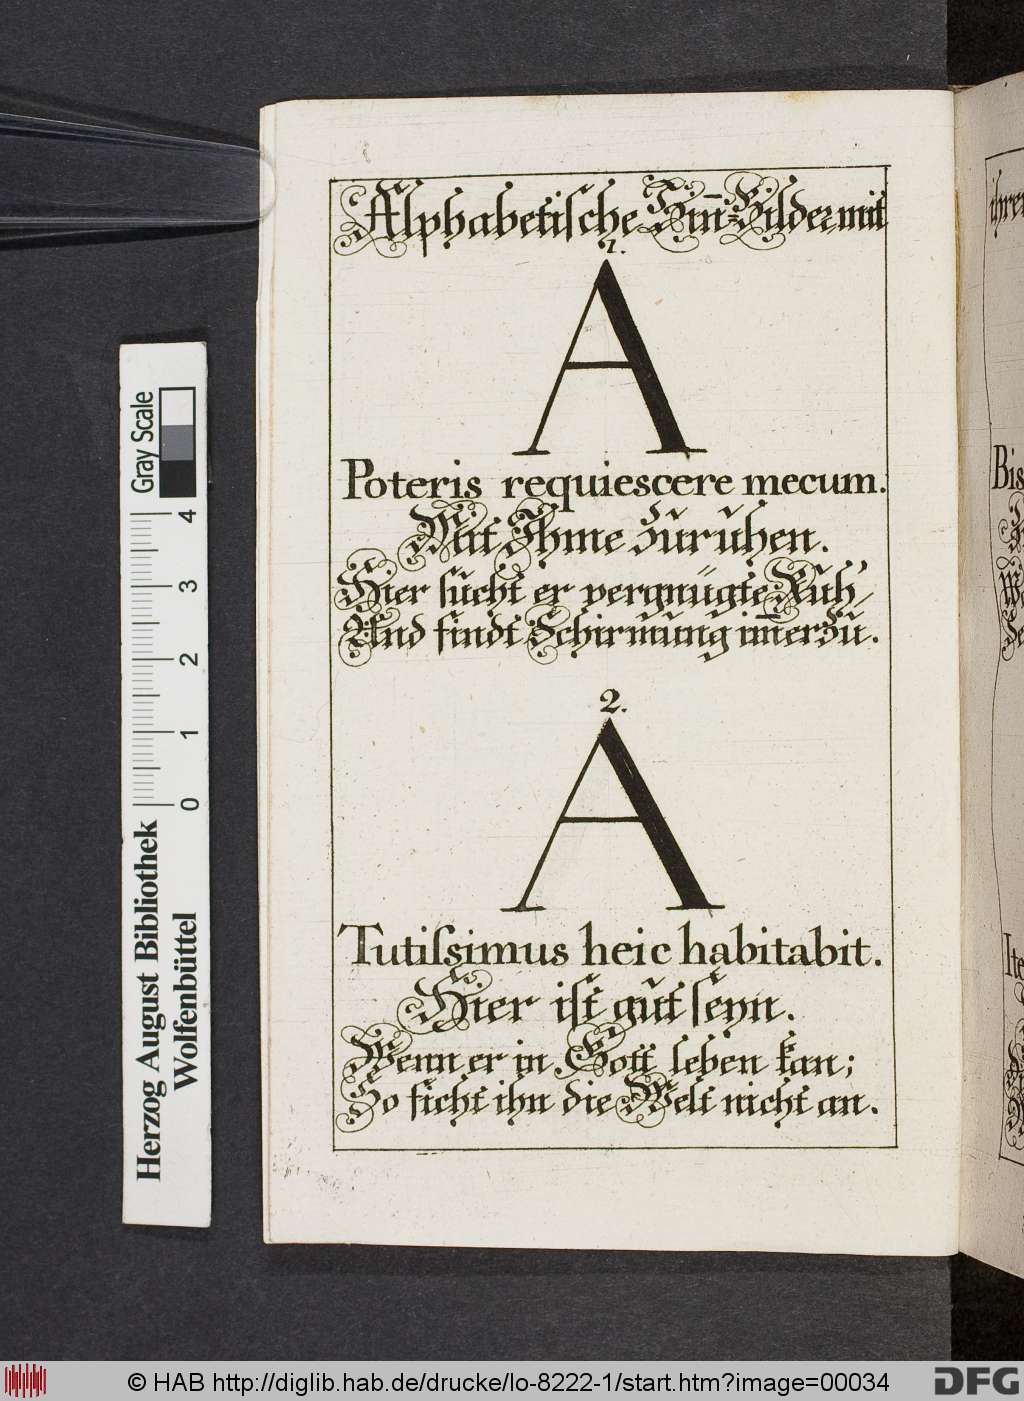 Alphabetische Sinn-Bilder mit
1.
A
Poteris requiescere mecum.
Mit Ihme zu ruhen.
Hier sucht er vergnügte Ruh,
Und findt Schirmung im̅erzu.
2.
A
Tutiſsimus heic habitabit.
Hier ist gut seyn.
Wenn er in Gott leben kan;
So ficht ihn die Welt nicht an.
ihren
Bis
Ite
Gray Scale
4
3
2
1
0
Herzog August Bibliothek
Wolfenbüttel
© HAB http://diglib.hab.de/drucke/lo-8222-1/start.htm?image=00034
DFG